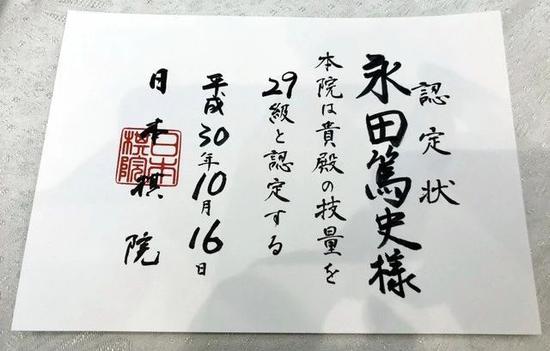 認定状
永田篤史様
本院は貴殿の技量を
29級と認定する
平成30年10月16日
日本棋院
日本棋院